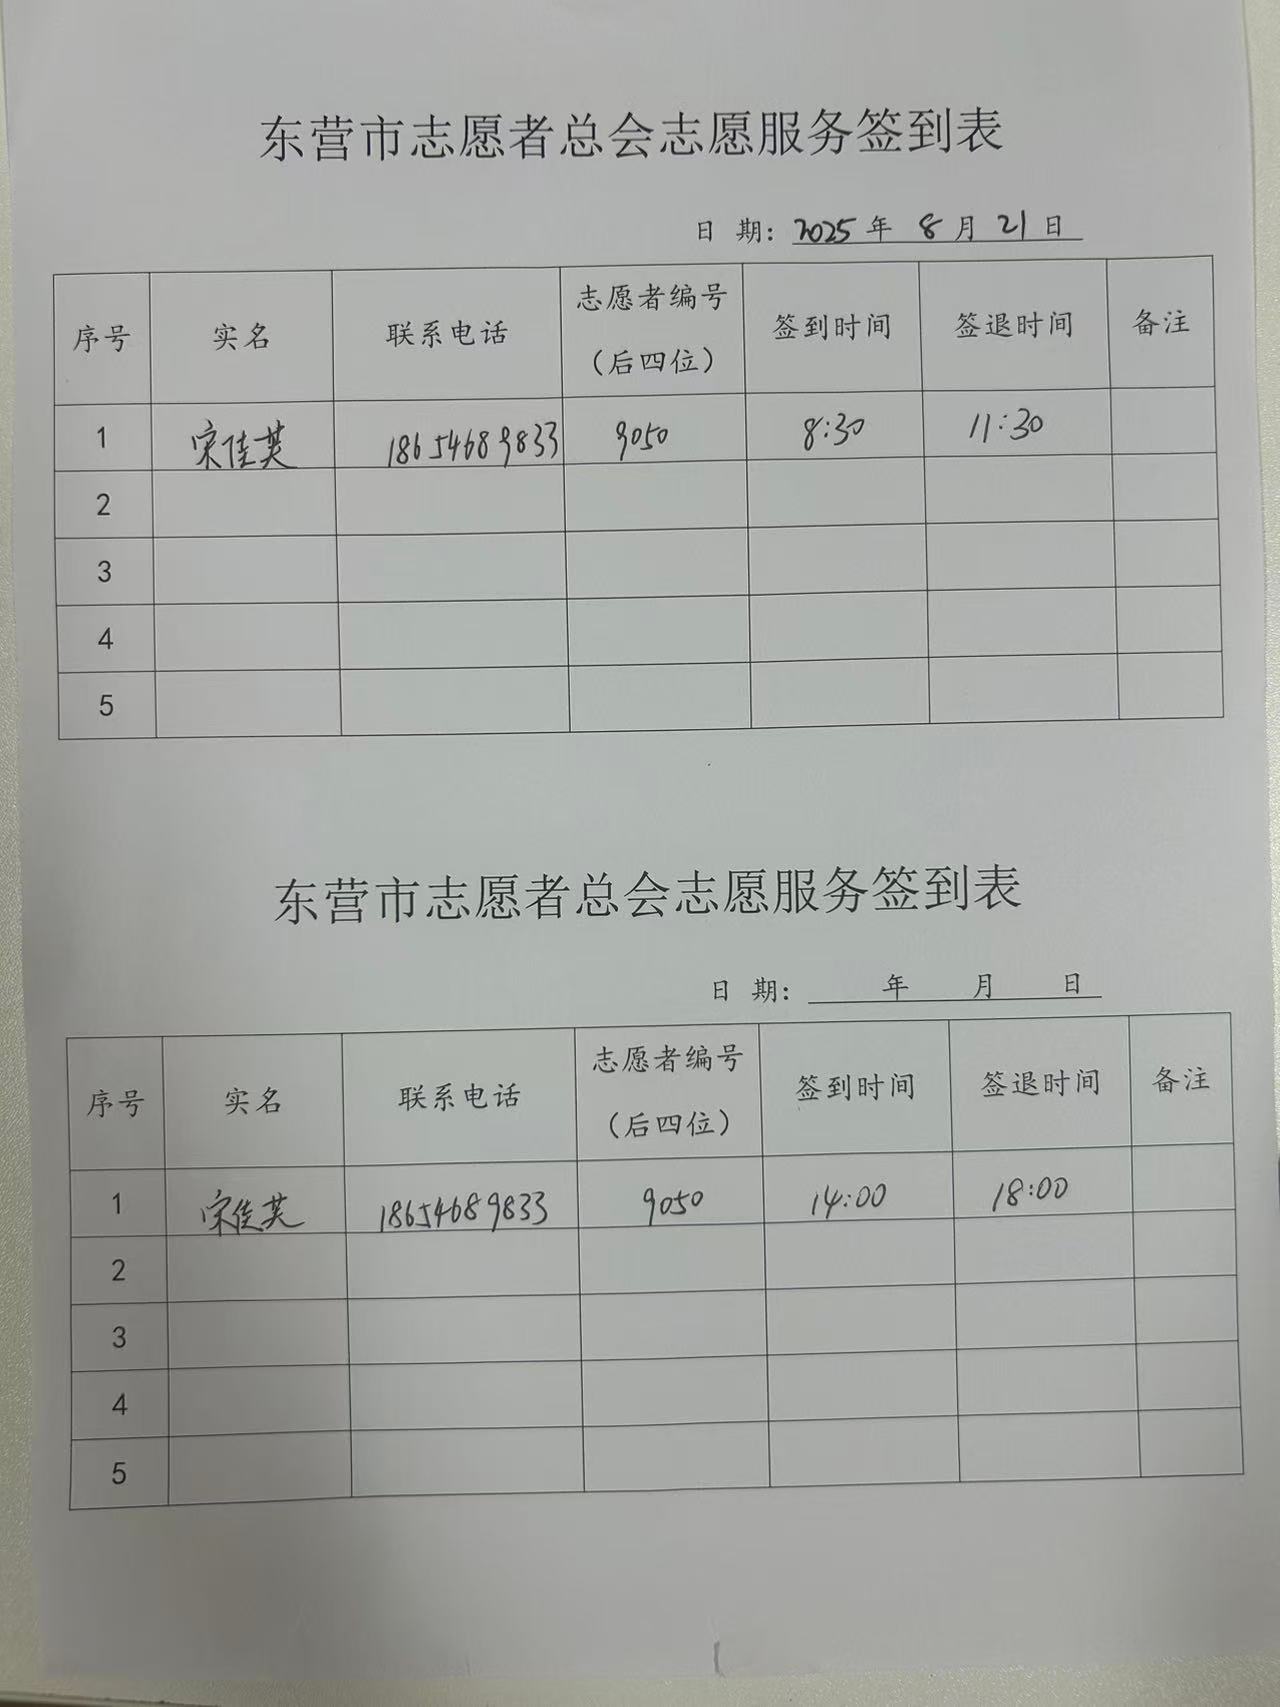 东营市志愿者总会志愿服务签到表
日 期：2025 年 8 月 21 日
序号 实名 联系电话 志愿者编号（后四位） 签到时间 签退时间 备注
1 宋佳英 18654689833 9050 8:30 11:30
2
3
4
5
东营市志愿者总会志愿服务签到表
日 期： 年 月 日
序号 实名 联系电话 志愿者编号（后四位） 签到时间 签退时间 备注
1 宋佳英 18654689833 9050 14:00 18:00
2
3
4
5